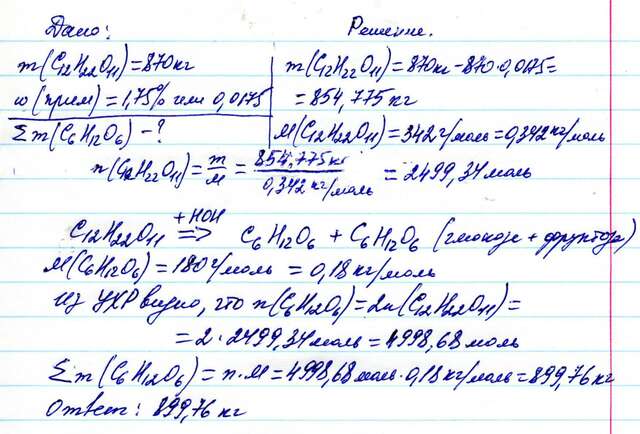 Дано:
m(C12H22O11)=870кг
w(прим)=1,75% или 0,0175
Σm(C6H12O6)-?
Решение.
m(C12H22O11)=870кг-870·0,0175=
=854,775кг
M(C12H22O11)=342г/моль=0,342кг/моль
n(C12H22O11)=m/M=854,775кг/0,342кг/моль=2499,34моль
+HOH
C12H22O11 => C6H12O6 + C6H12O6 (глюкоза + фруктоза)
M(C6H12O6)=180г/моль=0,18кг/моль
Из УХР видно, что n(C6H12O6)=2n(C12H22O11)=
=2·2499,34моль=4998,68моль
Σm(C6H12O6)=n·M=4998,68моль·0,18кг/моль=899,76кг
Ответ: 899,76кг